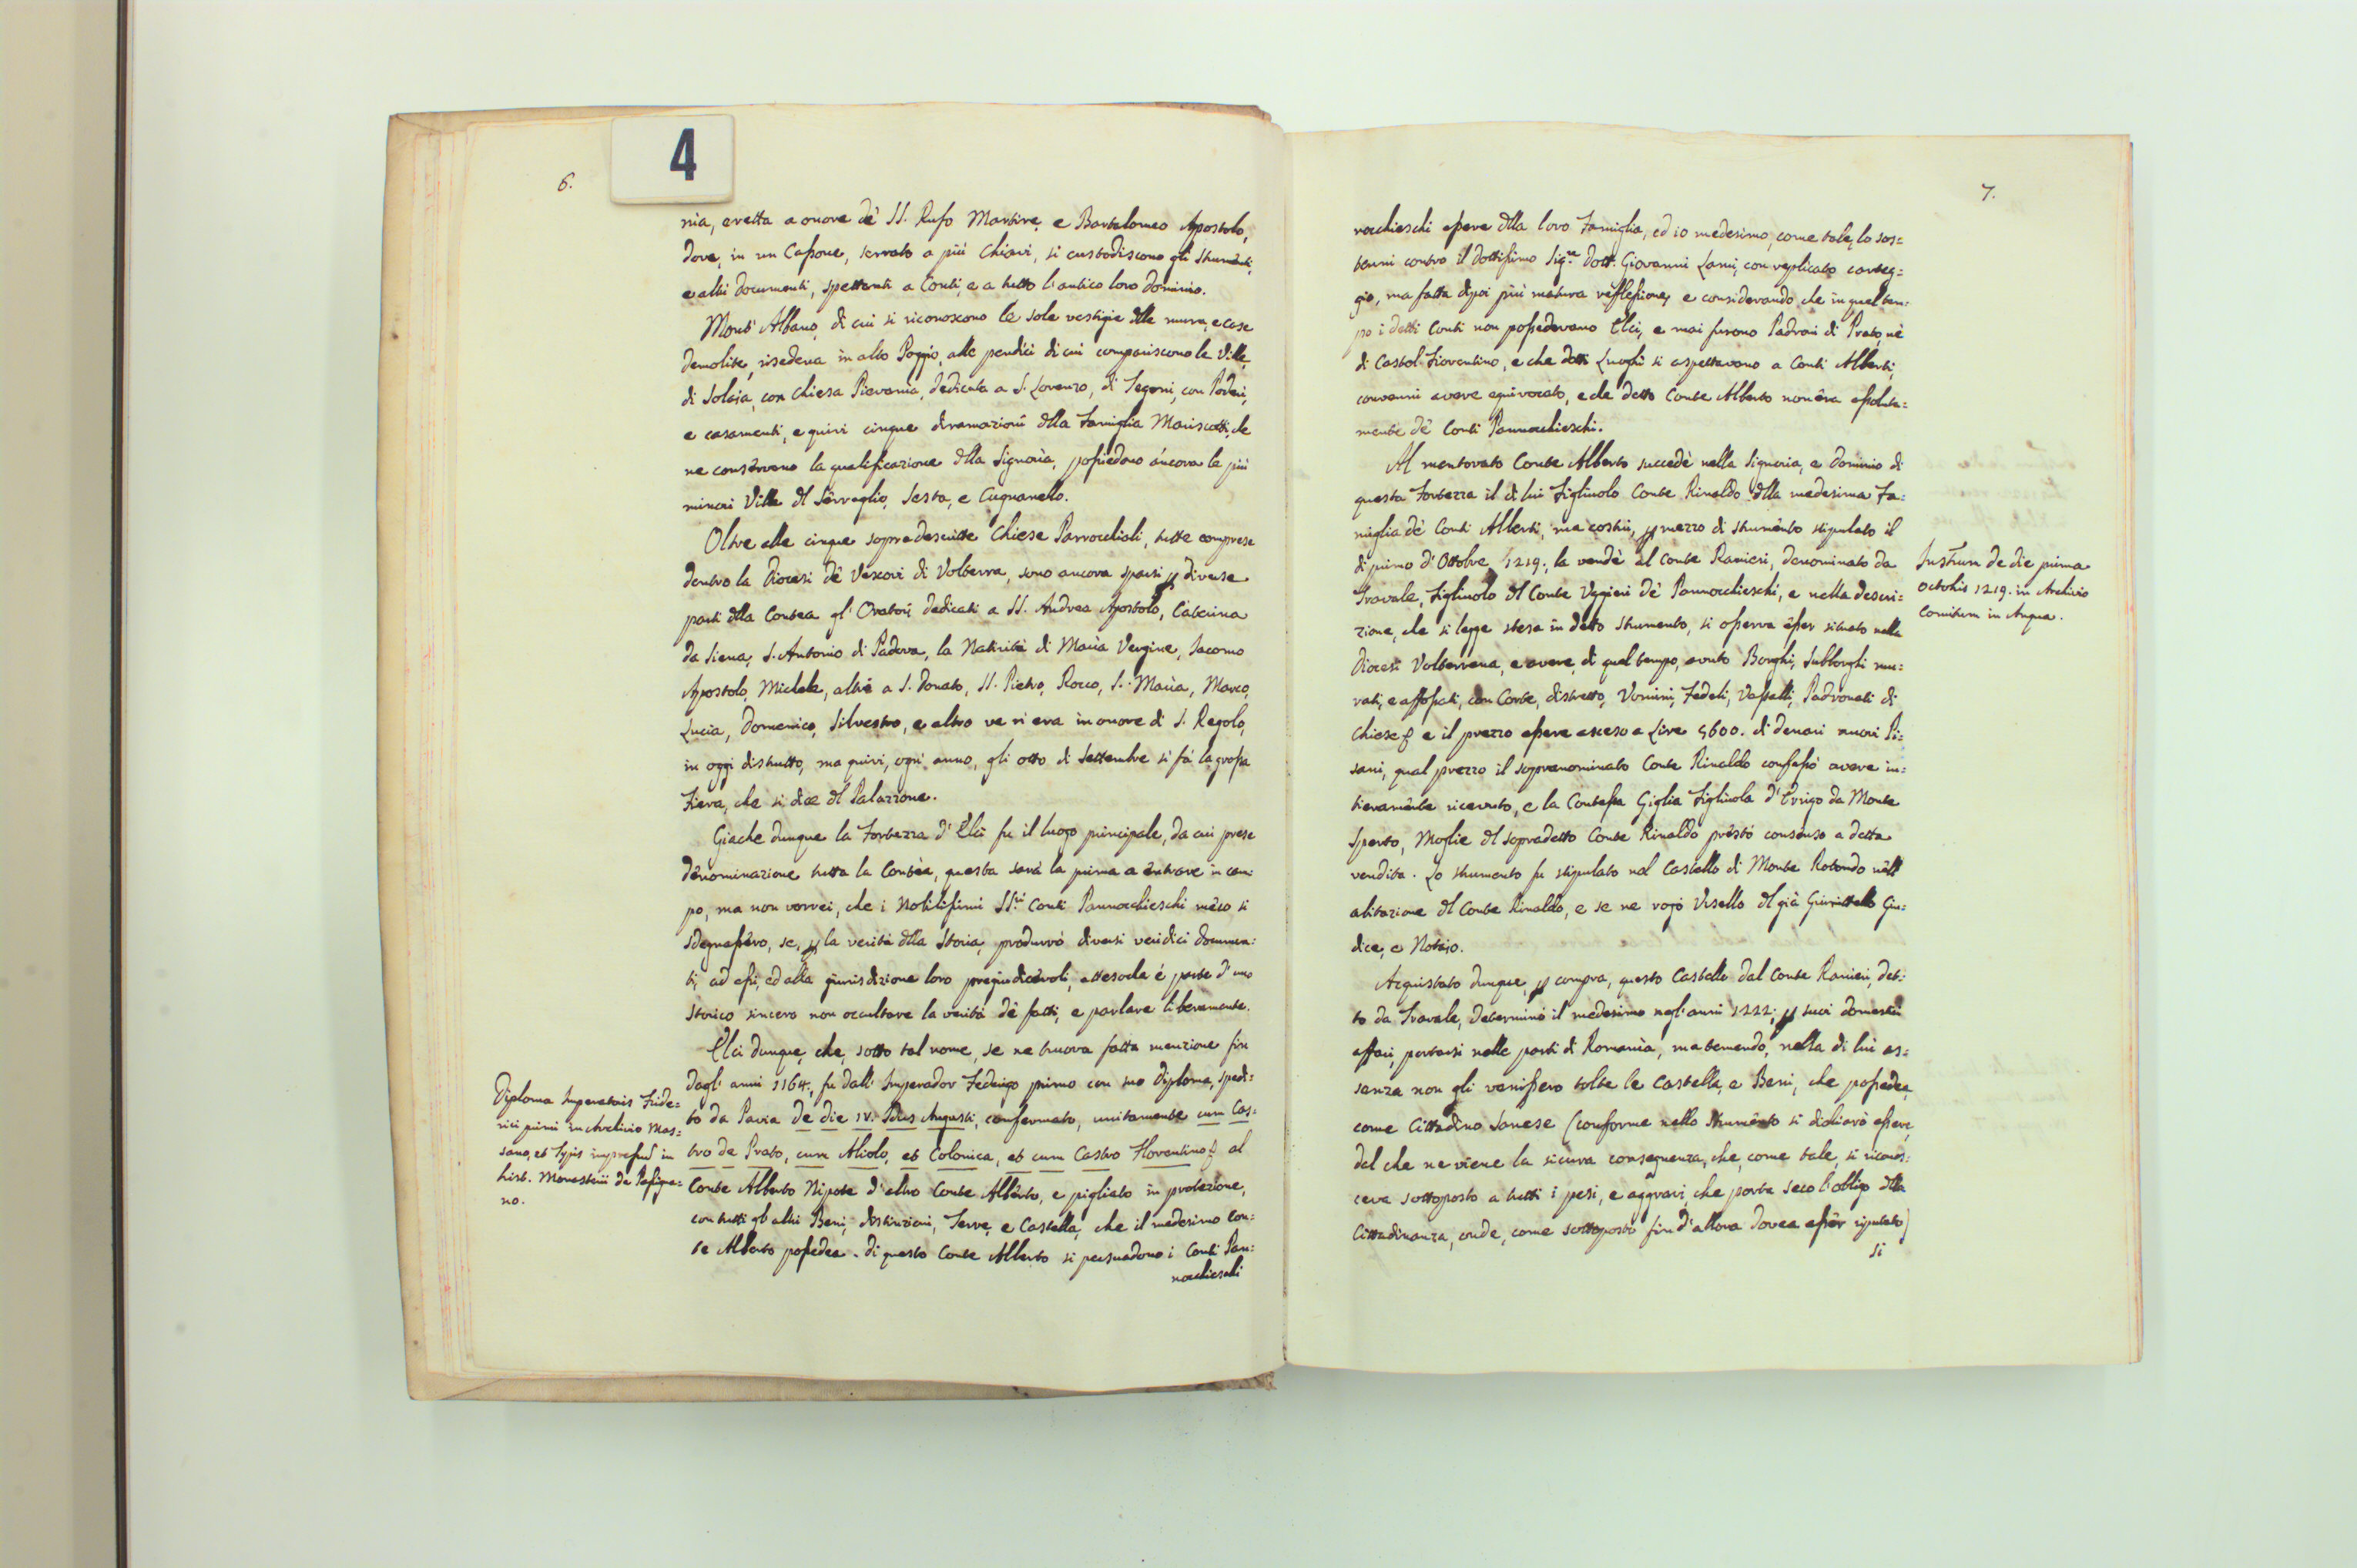 4
6.
nia, eretta a onore de' SS. Rufo Martire, e Bartolomeo Apostolo,
dove, in un Cassone, serrato a più Chiavi, si custodiscono gli Strumenti,
e altri Documenti, spettanti a Conti, e a tutto l'antico loro Dominio.
Mont' Albano, di cui si riconoscono le sole vestigie dlle mura, e case
demolite, risedeva in alto Poggio, alle pendici di cui compariscono le Ville
di Solaia, con Chiesa Pievania, dedicata a S. Lorenzo, di Tegoni, con Poderi,
e casamenti, e quivi cinque diramazioni dlla Famiglia Mariscotti, che
ne conservano la qualificazione dlla Signoria, possiedono ancora le più
minori Ville dl Serraglio, Sesta, e Cugnanello.
Oltre alle cinque sopradescritte Chiese Parrocchiali, tutte comprese
dentro la Diocesi de' Vescovi di Volterra, sono ancora sparsi p diverse
parti dlla Contea gl' Oratori dedicati a SS. Andrea Apostolo, Caterina
da Siena, S. Antonio di Padova, la Natività di Maria Vergine, Jacomo
Apostolo, Michele, altri a S. Donato, SS. Pietro, Rocco, S. Maria, Marco,
Lucia, Domenico, Silvestro, e altro ve ri era in onore di S. Regolo,
in oggi distrutto, ma quivi, ogni anno, gli otto di Settembre si fà la grossa
Fiera, che si dice dl Palazzone.
Giache dunque la Fortezza d' Elci fu il luogo principale, da cui prese
denominazione tutta la Contea, questa sarà la prima a entrare in cam:
po, ma non vorrei, che i Nobilissimi SS.ri Conti Pannocchieschi meco si
sdegnassero, se, p la verità dlla Storia, produrrò diversi veridici Documen:
ti, ad essi, ed alla giurisdizione loro pregiudicevoli, attesoche é parte d'uno
Storico sincero non occultare la verità de' fatti, e parlare liberamente.
Elci dunque, che, sotto tal nome, se ne truova fatta menzione fin
dagl' anni 1164., fu dall' Imperador Federigo primo con suo Diploma, spedi:
to da Pavia de die IV. Idus Augusti, confermato, unitamente cum Cas:
tro de Prato, cum Aliolo, et Colonica, et cum Castro Florentino al
Conte Alberto Nipote d'altro Conte Alberto, e pigliato in protezione,
con tutti gl' altri Beni, distinzioni, Terre, e Castella, che il medesimo Con:
te Alberto possedea. Di questo Conte Alberto si persuadono i Conti Pan:
nocchieschi
Diploma Imperatoris Fride=
rici primi in Archivio Mas=
sano, et Typis impressum in
hist. Monasterii de Passigna=
no.
7.
nocchieschi essere dlla loro Famiglia, ed io medesimo, come tale, lo sos:
tenni contro il dottissimo Sig.re Dott. Giovanni Lami, con replicato carteg:
gio, ma fatta dipoi più matura reflessione, e considerando, che in quel tem:
po i detti Conti non possedevano Elci, e mai furono Padroni di Prato, nè
di Castel Fiorentino, e che detti Luoghi si aspettavano a Conti Alberti,
convenni avere equivocato, e che detto Conte Alberto non era assoluta:
mente de' Conti Pannocchieschi.
Al mentovato Conte Alberto succedè nella Signoria, e Dominio di
questa Fortezza il di lui Figliuolo Conte Rinaldo dlla medesima Fa:
miglia de' Conti Alberti, ma costui, p mezzo di Strumento stipulato il
dì primo d' Ottobre 1219., la vendè al Conte Ranieri, denominato da
Travale, Figliuolo dl Conte Uggieri de' Pannocchieschi, e nella descri:
zione, che si legge stesa in detto Strumento, si osserva esser situato nella
Diocesi Volterrana, e avere, di quel tempo, avuto Borghi, Subborghi mu:
rati, e affossati, con Corte, distretto, Uomini, Fedeli, Vassalli, Padronati di
Chiese e il prezzo essere asceso a Lire 5600. di denari nuovi Pi:
sani, qual prezzo il sopranominato Conte Rinaldo confessò avere in:
tieramente ricevuto, e la Contessa Giglia Figliuola d' Errigo da Monte
Sperto, Moglie dl sopradetto Conte Rinaldo prestò consenso a detta
vendita. Lo Strumento fu stipulato nel Castello di Monte Rotondo nell'
abitazione dl Conte Rinaldo, e se ne rogò Usello dl già Giunttello Giu:
dice, e Notaio.
Acquistato dunque, p compra, questo Castello dal Conte Ranieri, det:
to da Travale, determinò il medesimo negl' anni 1222; p suoi domestici
affari, portarsi nelle parti di Romania, ma temendo, nella di lui as:
senza non gli venissero tolte le Castella, e Beni, che possedea,
come Cittadino Sanese (conforme nello Strumento si dichiarò essere,
dal che ne viene la sicura conseguenza, che, come tale, si ricono:
sceva sottoposto a tutti i pesi, e aggravi, che porta seco l'obligo dlla
Cittadinanza, onde, come sottoposto fin d'allora dovea esser riputato)
si
Instrum de die prima
Octobris 1219. in Archivio
Comitum in Anqua.